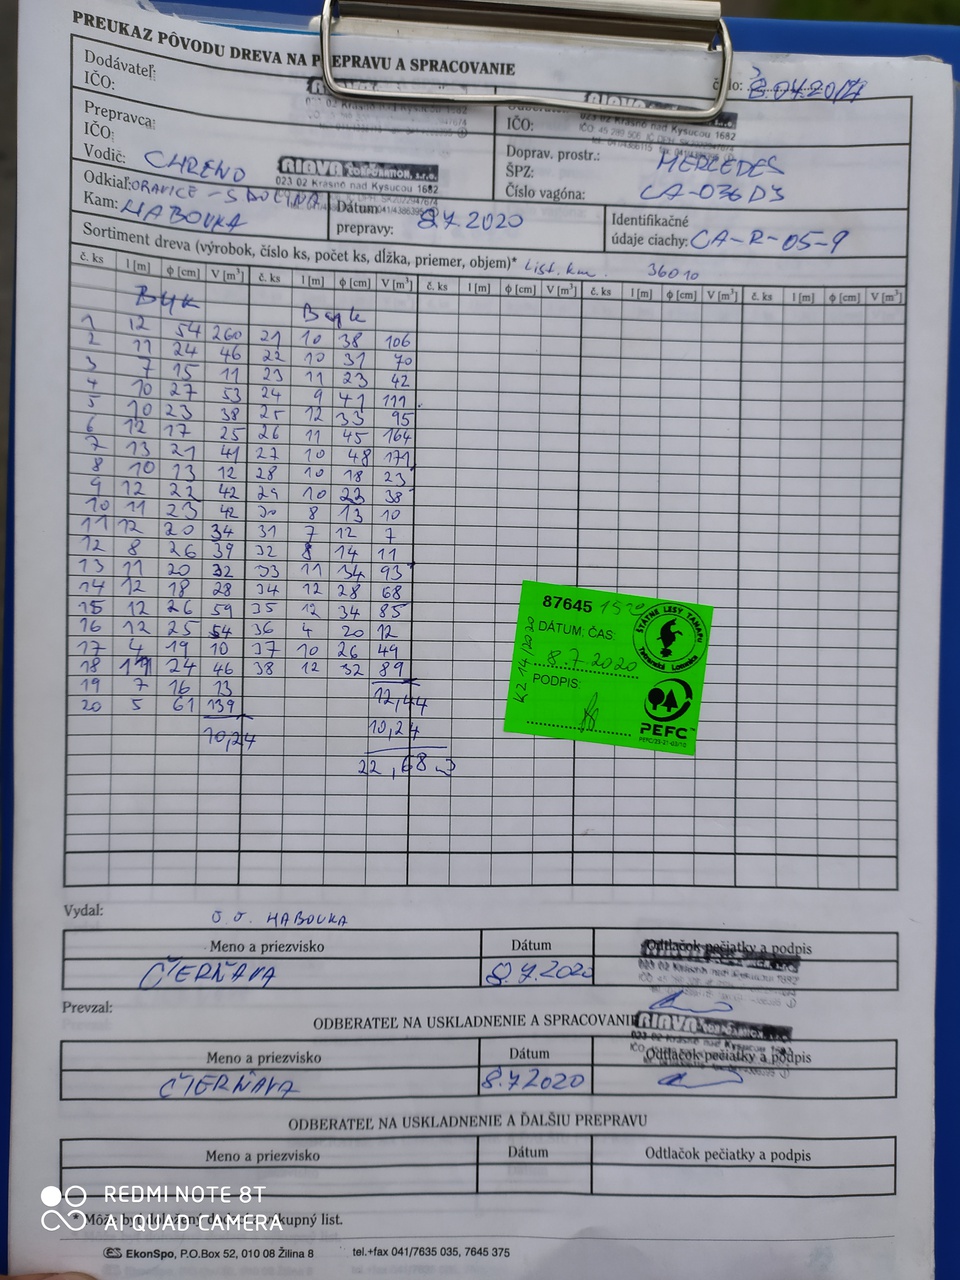 PREUKAZ PÔVODU DREVA NA PREPRAVU A SPRACOVANIE
Dodávateľ:
IČO:
číslo:
Prepravca:
IČO:
IČO:
Vodič: CHRENO
RIAVA CORPORATION, s.r.o.
023 02 Krásno nad Kysucou 1682
Doprav. prostr.: MERCEDES
ŠPZ:
Číslo vagóna: CA-036DJ
Odkiaľ: ORAVICE -
Kam: HABOVKA
Dátum prepravy: 8.7.2020
Identifikačné
údaje ciachy: CA-R-05-9
Sortiment dreva (výrobok, číslo ks, počet ks, dĺžka, priemer, objem)* 36010
č. ks l [m] ϕ [cm] V [m³] č. ks l [m] ϕ [cm] V [m³] č. ks l [m] ϕ [cm] V [m³] č. ks l [m] ϕ [cm] V [m³] č. ks l [m] ϕ [cm] V [m³]
Buk Buk
1 12 54 260 21 10 38 106
2 11 24 46 22 10 31 70
3 7 15 11 23 11 23 42
4 10 27 53 24 9 41 111
5 10 23 38 25 12 33 95
6 12 17 25 26 11 45 164
7 13 21 41 27 10 48 171
8 10 13 12 28 10 18 23
9 12 22 42 29 10 23 38
10 11 23 42 30 8 13 10
11 12 20 34 31 7 12 7
12 8 26 39 32 8 14 11
13 11 20 32 33 11 34 93
14 12 18 28 34 12 28 68
15 12 26 59 35 12 34 85
16 12 25 54 36 4 20 12
17 4 19 10 37 10 26 49
18 11 24 46 38 12 32 89
19 7 16 13
20 5 61 139
12,44
10,24
10,24
22,68
87645
DÁTUM, ČAS:
8.7.2020
KZ 14/2020
PODPIS:
ŠTÁTNE LESY TANAPU
Tatranská Lomnica
PEFC
Vydal: HABOVKA
Meno a priezvisko Dátum Odtlačok pečiatky a podpis
ČIERŇAVA 8.7.2020
Prevzal:
ODBERATEĽ NA USKLADNENIE A SPRACOVANIE
RIAVA
Meno a priezvisko Dátum Odtlačok pečiatky a podpis
ČIERŇAVA 8.7.2020
ODBERATEĽ NA USKLADNENIE A ĎALŠIU PREPRAVU
Meno a priezvisko Dátum Odtlačok pečiatky a podpis
REDMI NOTE 8T
AI QUAD CAMERA
EkonSpo, P.O.Box 52, 010 08 Žilina 8 tel.+fax 041/7635 035, 7645 375